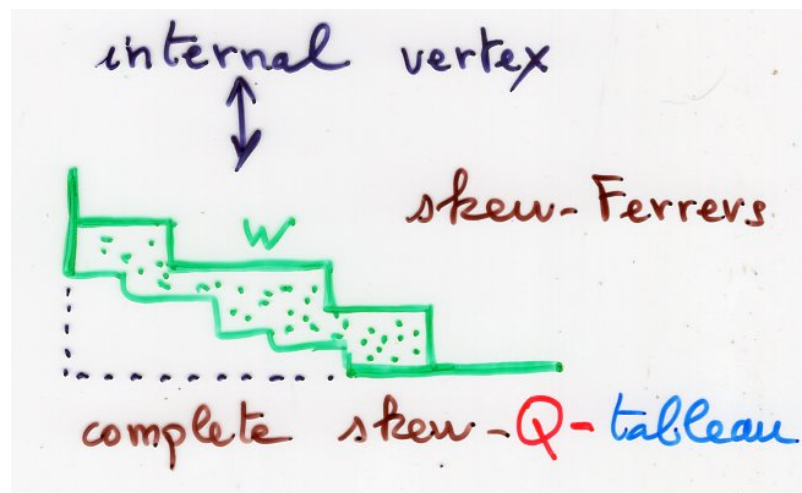 internal vertex
skew-Ferrers
W
complete skew-Q-tableau